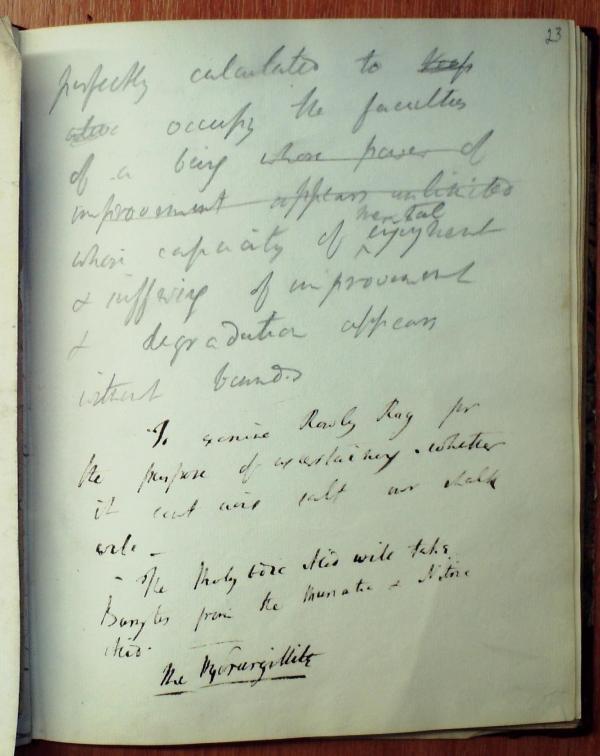 23
perfectly calculated to keep
alive occupy the faculties
of a being whose power of
improvement appears unlimited
mental
whose capacity of enjoyment
& suffering of improvement
& degradation appears
without bounds
To examine Rowley Rag for
the purpose of ascertaining whether
it
–
– The Molybdic Acid will take
Barytes from the Muriatic & Nitric
Acid.
The Hydrargillite